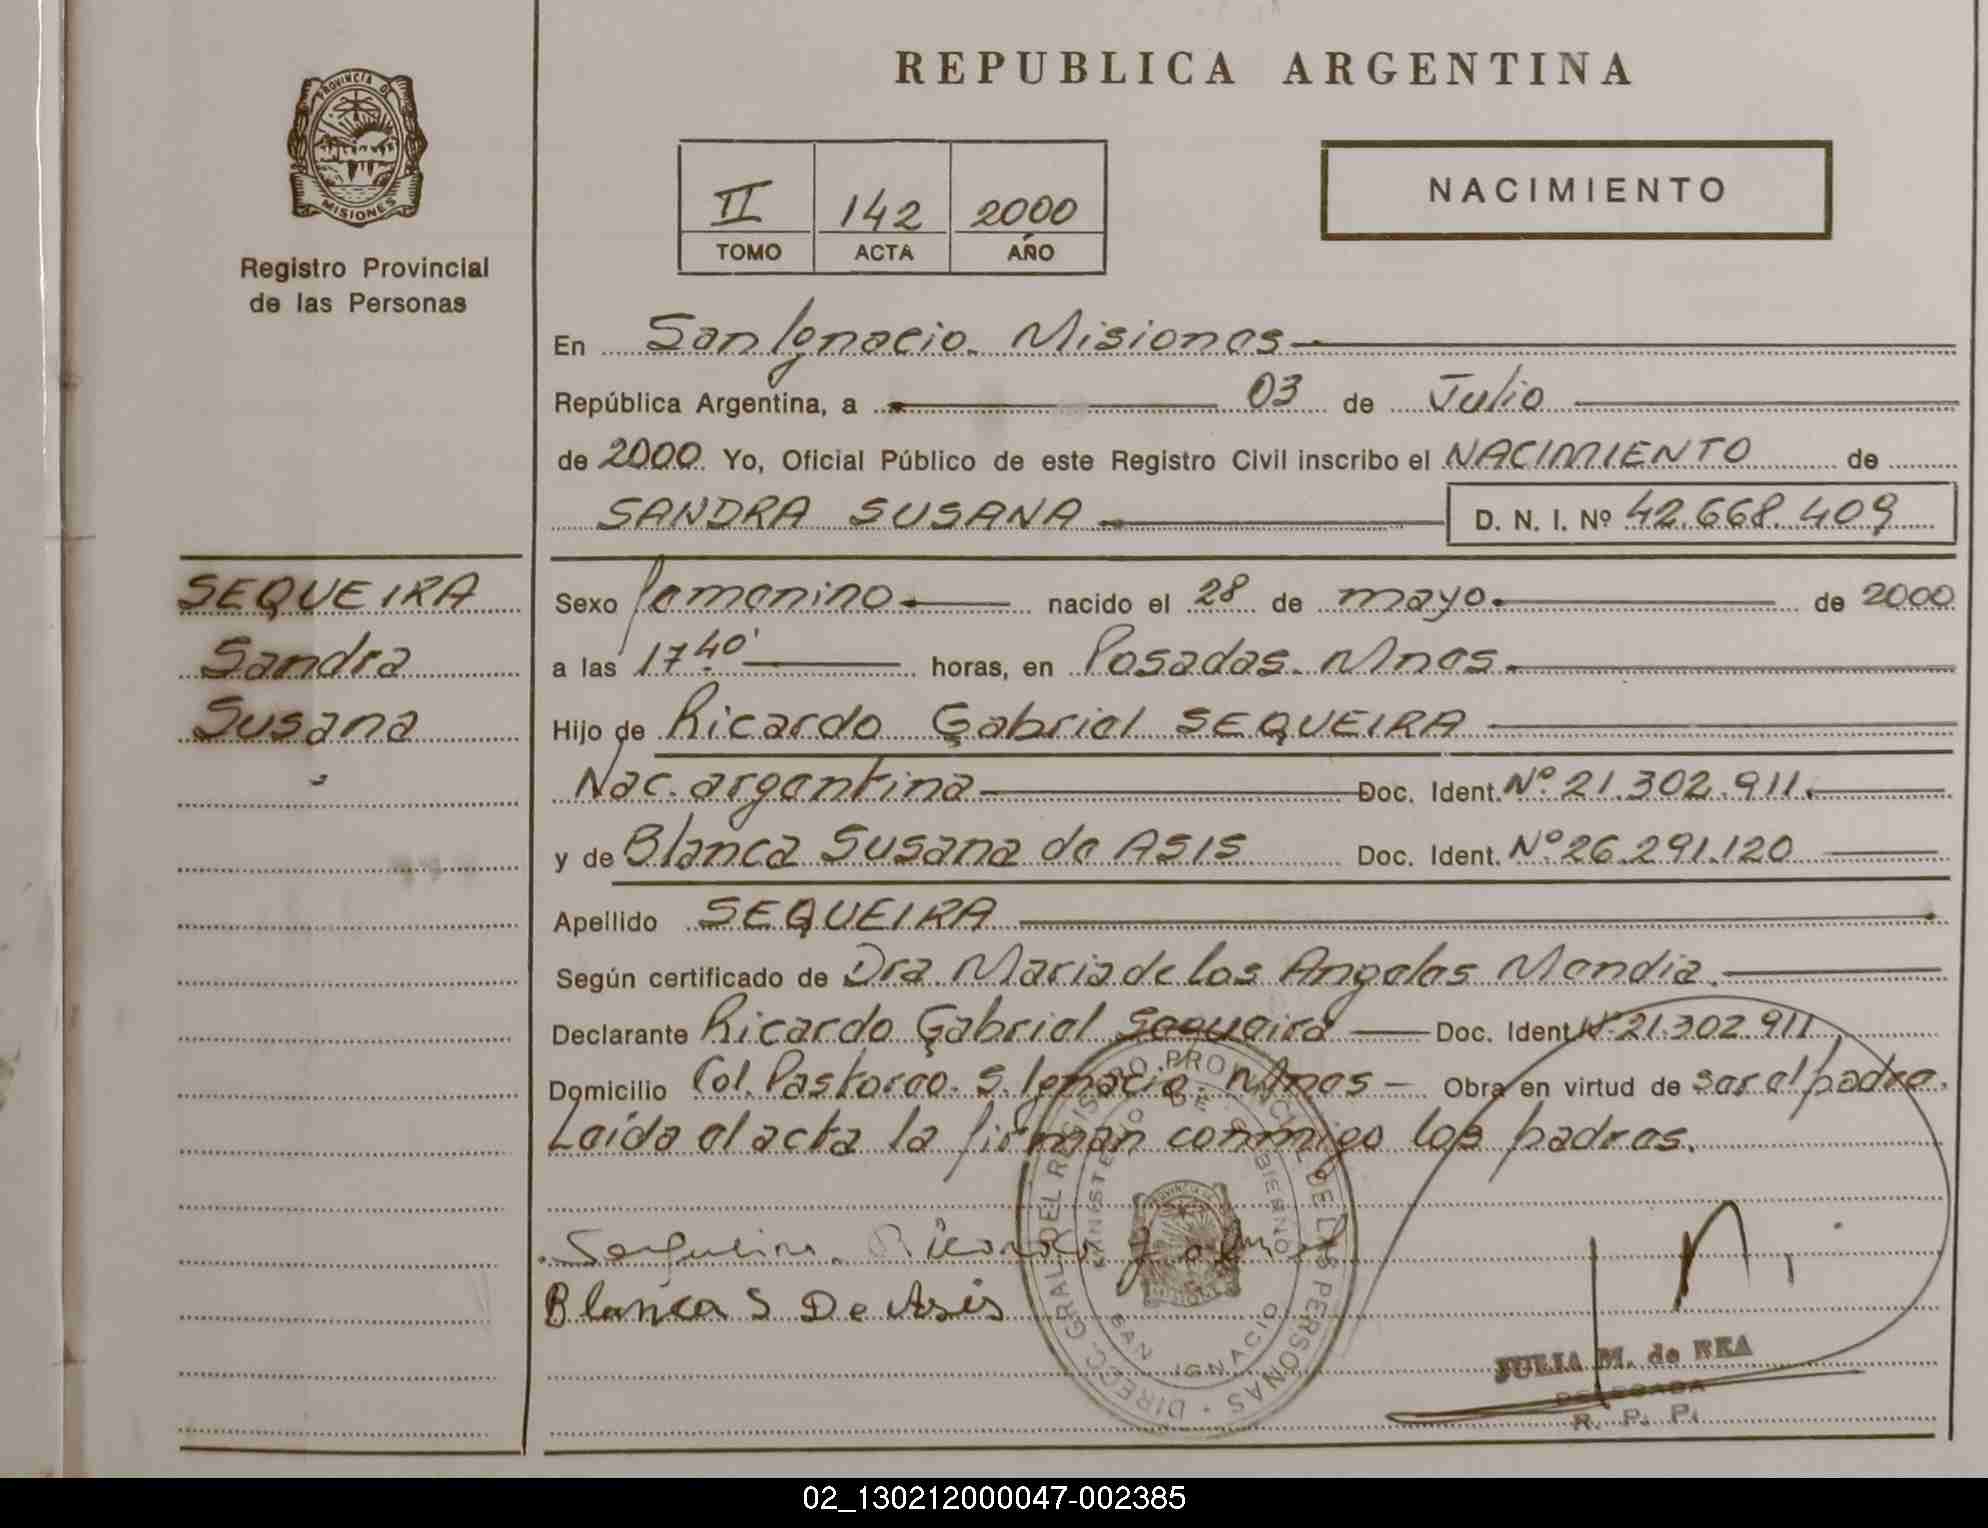 REPUBLICA ARGENTINA
PROVINCIA D
MISIONES
Registro Provincial
de las Personas
II 142 2000
TOMO ACTA AÑO
NACIMIENTO
En San Ignacio. Misiones
República Argentina, a 03 de Julio
de 2000. Yo, Oficial Público de este Registro Civil inscribo el NACIMIENTO de
SANDRA SUSANA D. N. I. Nº 42.668.409
SEQUEIRA
Sandra
Susana
Sexo femenino nacido el 28 de mayo. de 2000
a las 17 40' horas, en Posadas. Mnes.
Hijo de Ricardo Gabriel SEQUEIRA
Nac. argentina Doc. Ident. Nº 21.302.911.
y de Blanca Susana de ASIS Doc. Ident. Nº 26.291.120
Apellido SEQUEIRA
Según certificado de Dra Maria de los Angeles Mendia.
Declarante Ricardo Gabriel Sequeira Doc. Ident Nº 21.302.911
Domicilio Col. Pastoreo. S. Ignacio. Mnes - Obra en virtud de ser el padre.
Leída el acta la firman conmigo los padres.
Sequeira. Ricardo Gabriel
Blanca S De Asis
DIRECC. GRAL. DEL REGISTRO PROVINCIAL DE LAS PERSONAS
MINISTERIO DE GOBIERNO
SAN IGNACIO
JULIA M. de REA
DELEGADA
R. P. P.
02_130212000047-002385